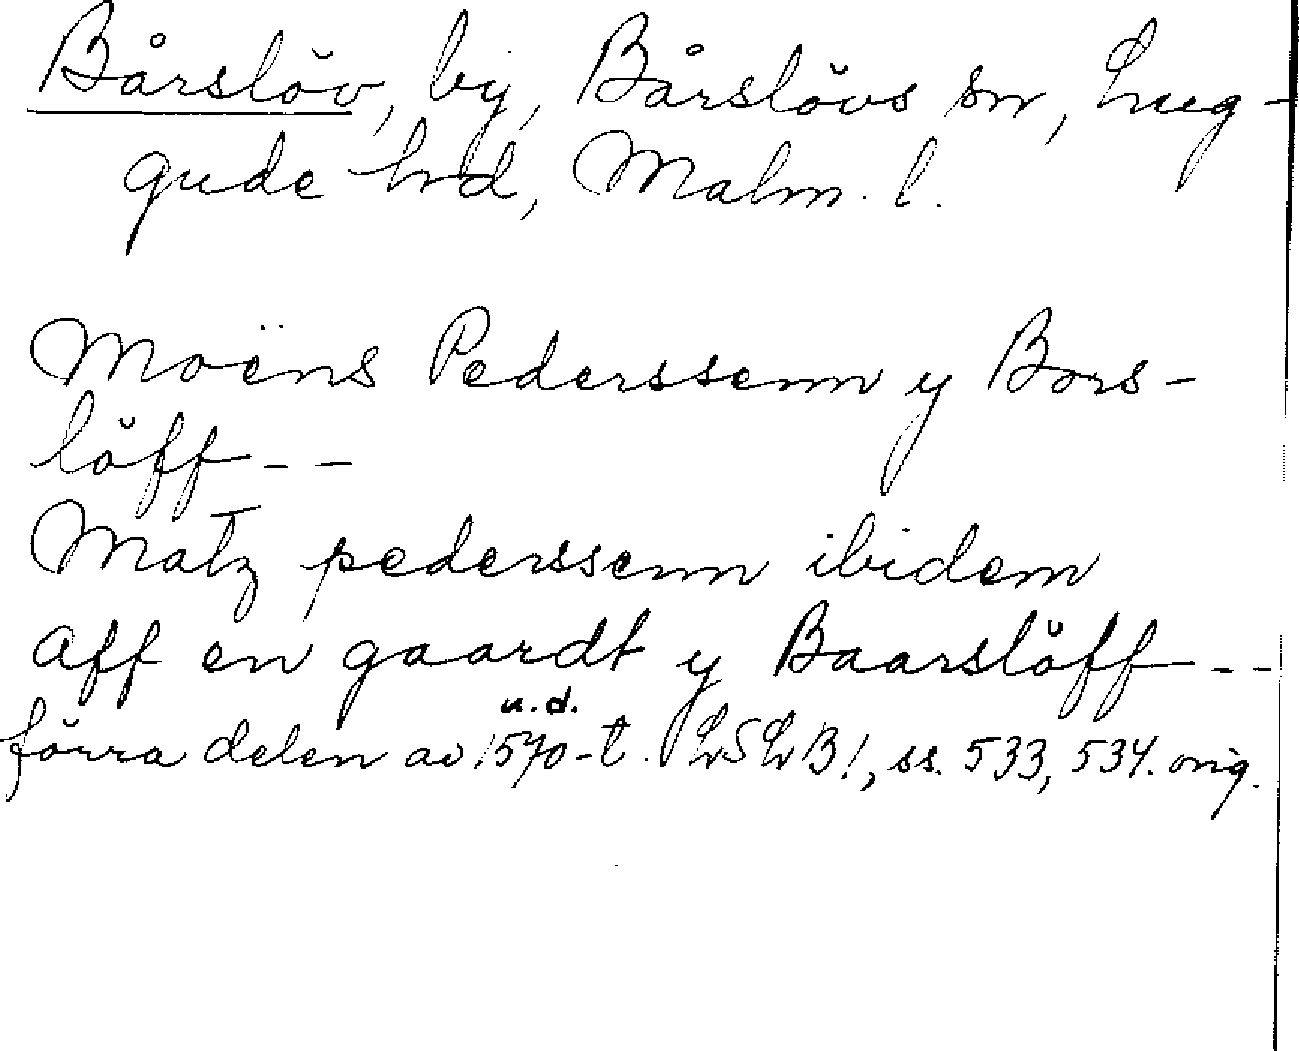 Bårslöv, by, Bårslövs sn, Lug-
gude hd, Malm. l.
Moëns Pederssenn y Bors-
löff --
Matz pederssenn ibidem
Aff en gaardt y Baarslöff --
u.d.
förra delen av 1570-t. LSLB1, ss. 533, 534. orig.